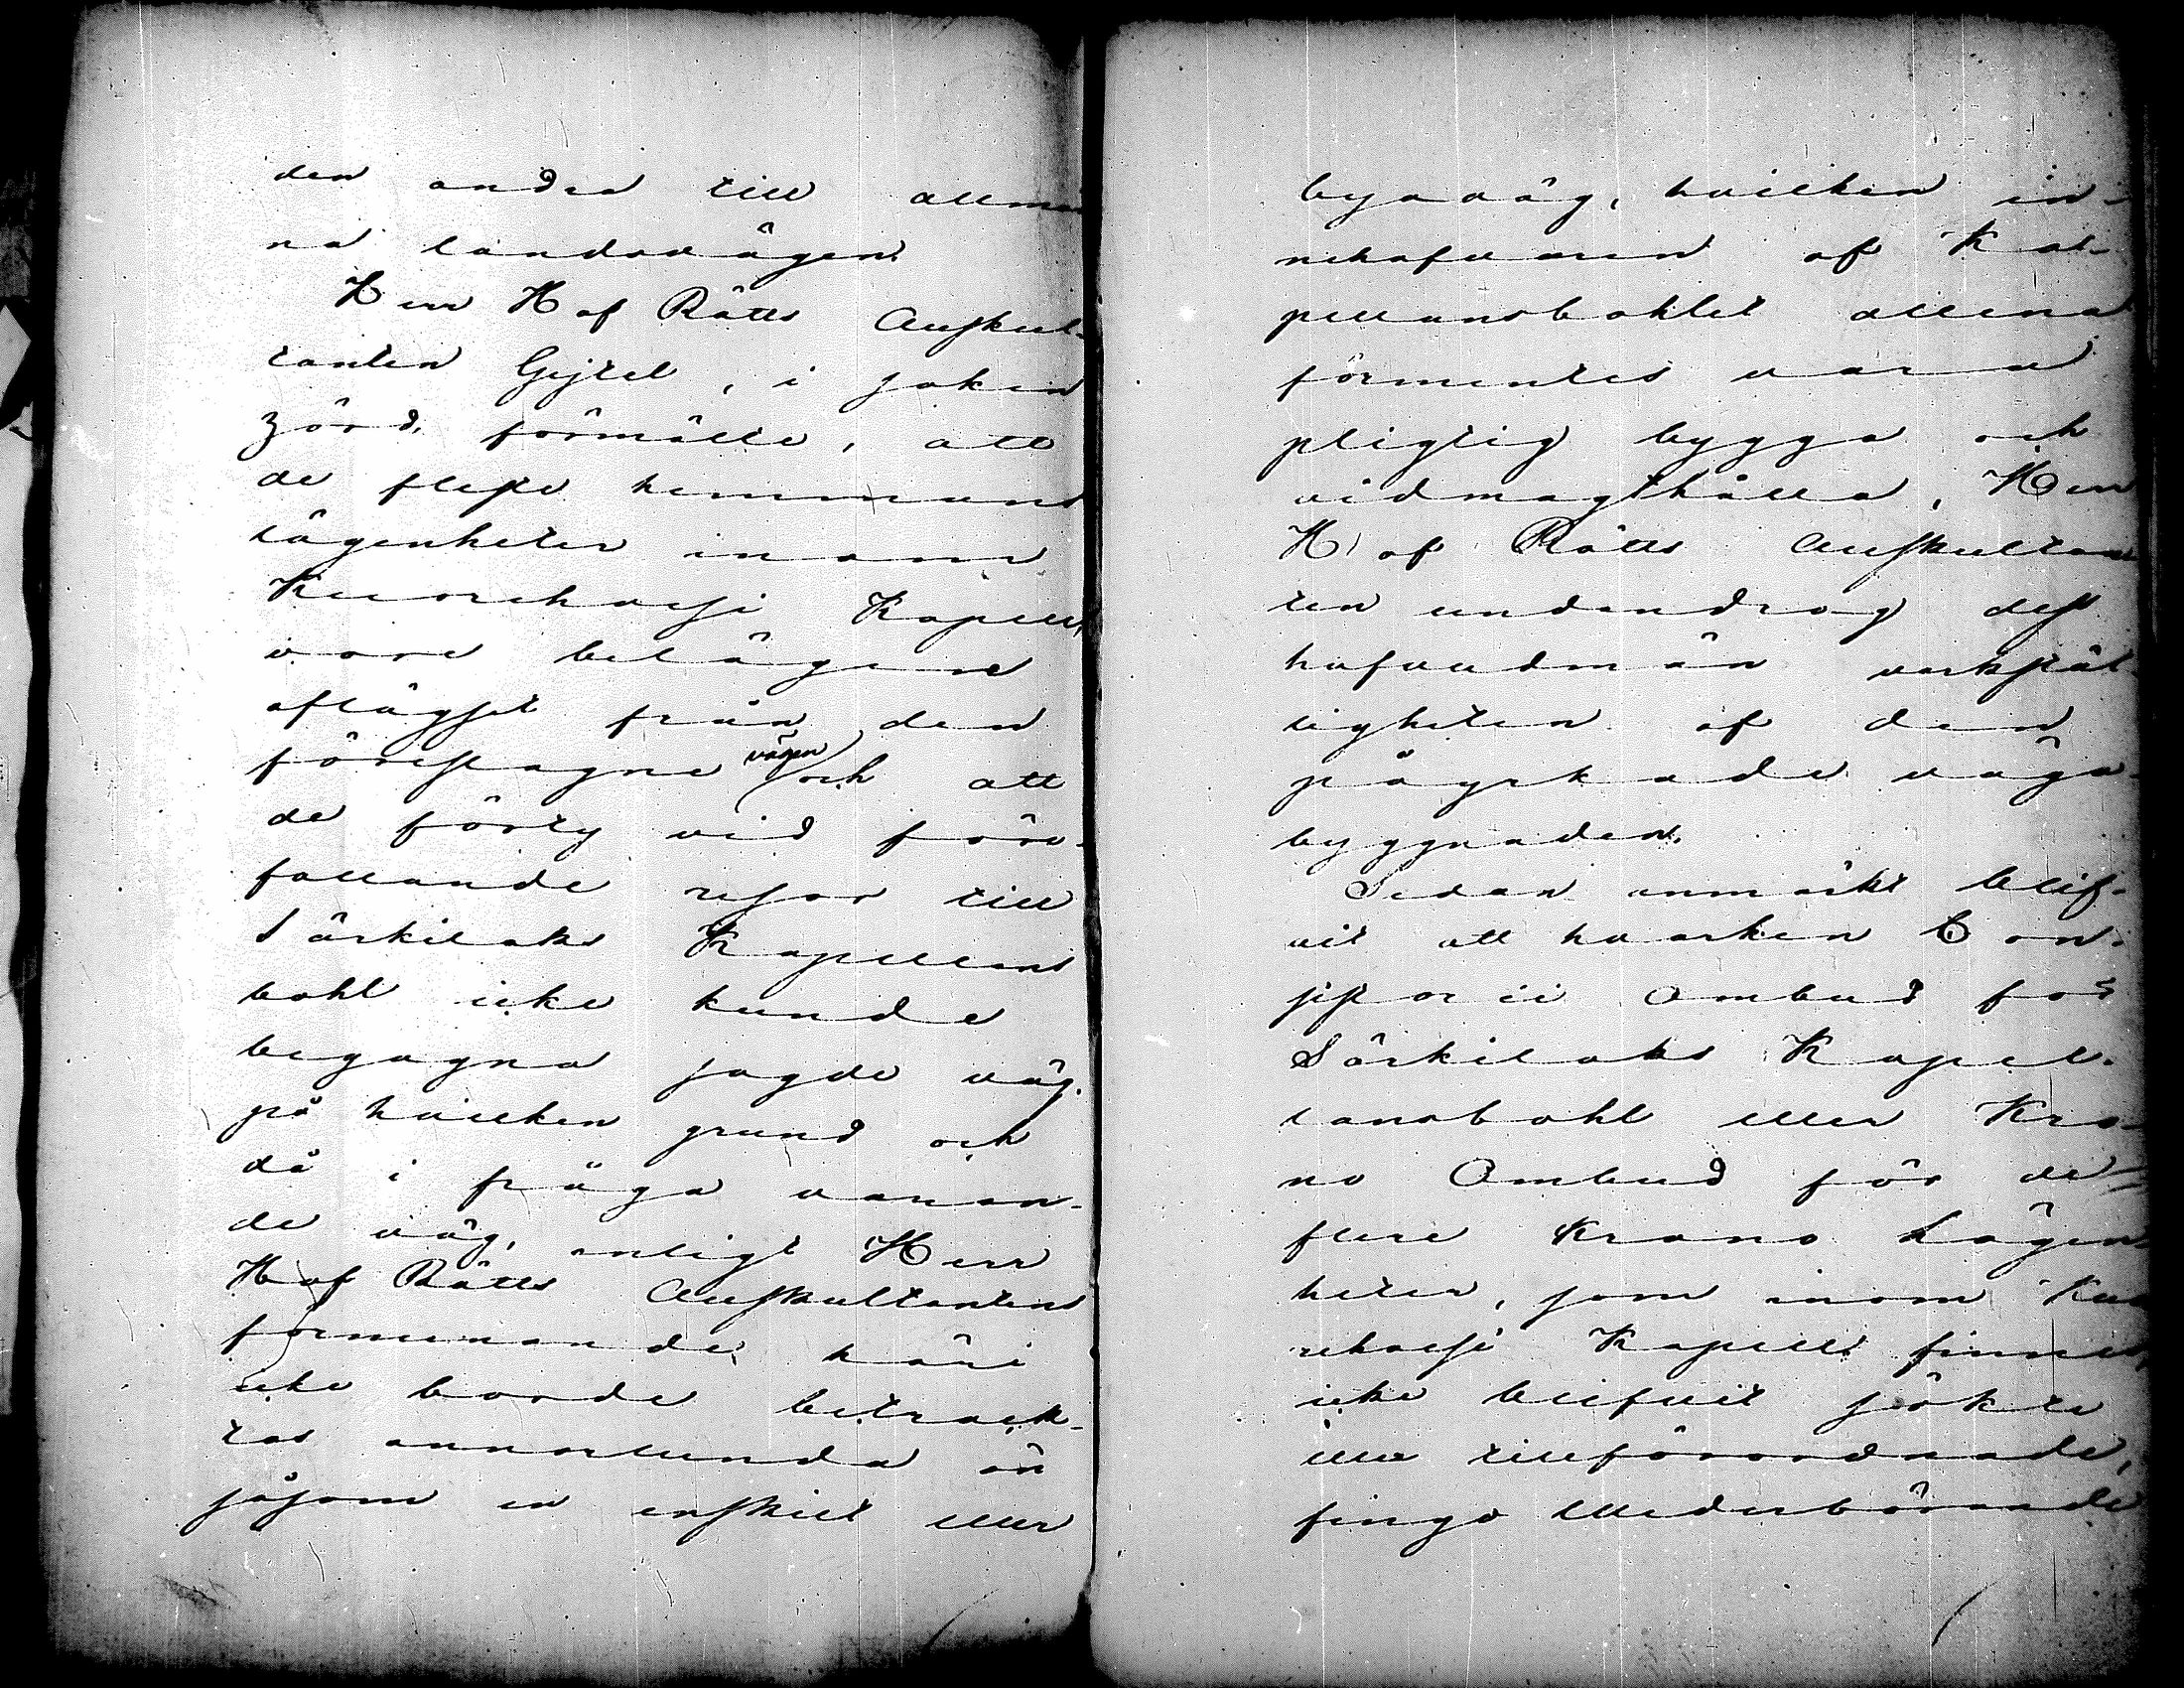 den andra till allmä
na landsvägen.
Herr Hof Rätts Auskul-
tanten Gejtel, i saken
hörd, förmälte, att
de fleste hemmans
lägenheter inom
Kuorehvesi Kapell,
vore belägne
aflägset från den
föreslagne vägen och att
de förty vid före-
fallande resor till
Särkilaks Kapellans
bohl icke kunde
begagna sagde väg,
på hvilken grund och
då i fråga varan-
de väg, enligt Herr
Hof Rätts Auskultantens
förmenande, häri
icke borde betrack-
tas annorlunda än
såsom en enskilt eller
byaväg, hvilken in-
nehafvaren af Ka-
pellansbohlet allena
förmentes vara
pligtig bygga och
vidmagthålla, Herr
Hof Rätts Auskultan
ten undandrog dess
hufvudmän verkstäl-
ligheten af den
påyrkade väga-
byggnaden.
Sedan anmärkt blif-
vit att hvarken Con-
sistorii Ombud för
Särkilaks Kapel-
lansbohl eller Kro-
no Ombud för de
flere Krono Lägen
heter, som inom Kuo
rehvesi Kapell finnes,
icke blifvit sökte
eller tillförordnade,
fingo Vederbörande